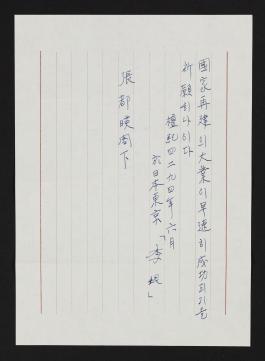 國家再建의大業이早速히成功되기를
祈願하나이다
檀紀四二九四年六月
於日本東京「李 垠」
張都暎閣下